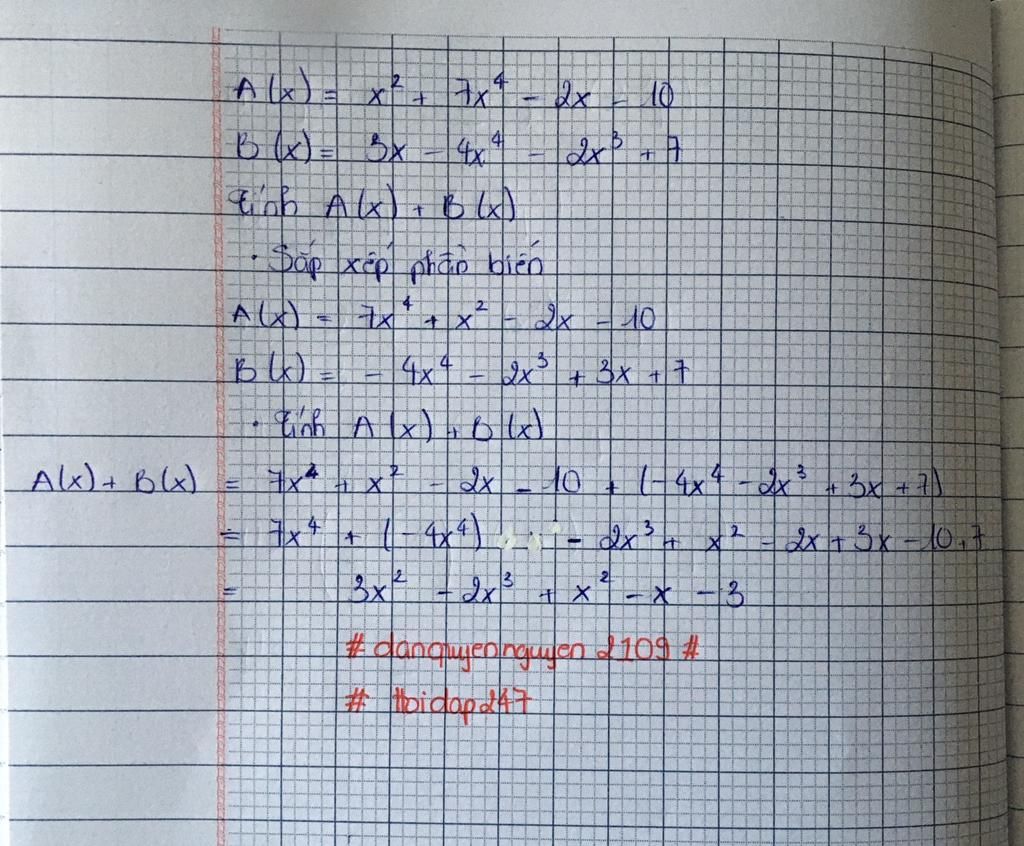 A(x) = x² + 7x⁴ - 2x - 10
B(x) = 3x - 4x⁴ - 2x³ + 7
Tính A(x) + B(x)
• Sắp xếp phần biến
A(x) = 7x⁴ + x² - 2x - 10
B(x) = - 4x⁴ - 2x³ + 3x + 7
• Tính A(x) + B(x)
A(x) + B(x) = 7x⁴ + x² - 2x - 10 + (-4x⁴ - 2x³ + 3x + 7)
= 7x⁴ + (-4x⁴) - 2x³ + x² - 2x + 3x - 10 + 7
= 3x² - 2x³ + x² - x - 3
# danquyennguyen 2109 #
# hoidap247